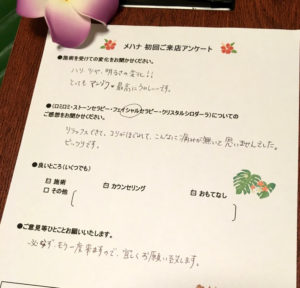 メハナ 初回ご来店アンケート
●施術を受けての変化をお聞かせください。
ハリ、ツヤ、明るさの変化!!
とっても
最高にうれしーです。
●(ロミロミ・ストーンセラピー・フェイシャルセラピー・クリスタルシロダーラ)についての
ご感想をお聞かせください。
リラックスできて、コリがほぐれて、こんなに痛みが無いと思いませんでした。
ビックリです。
●良いところ(いくつでも)
施術
カウンセリング
おもてなし
その他
●ご意見等ひとことお願いいたします。
必ず、もう一度来ますので、宜しくお願い致します。